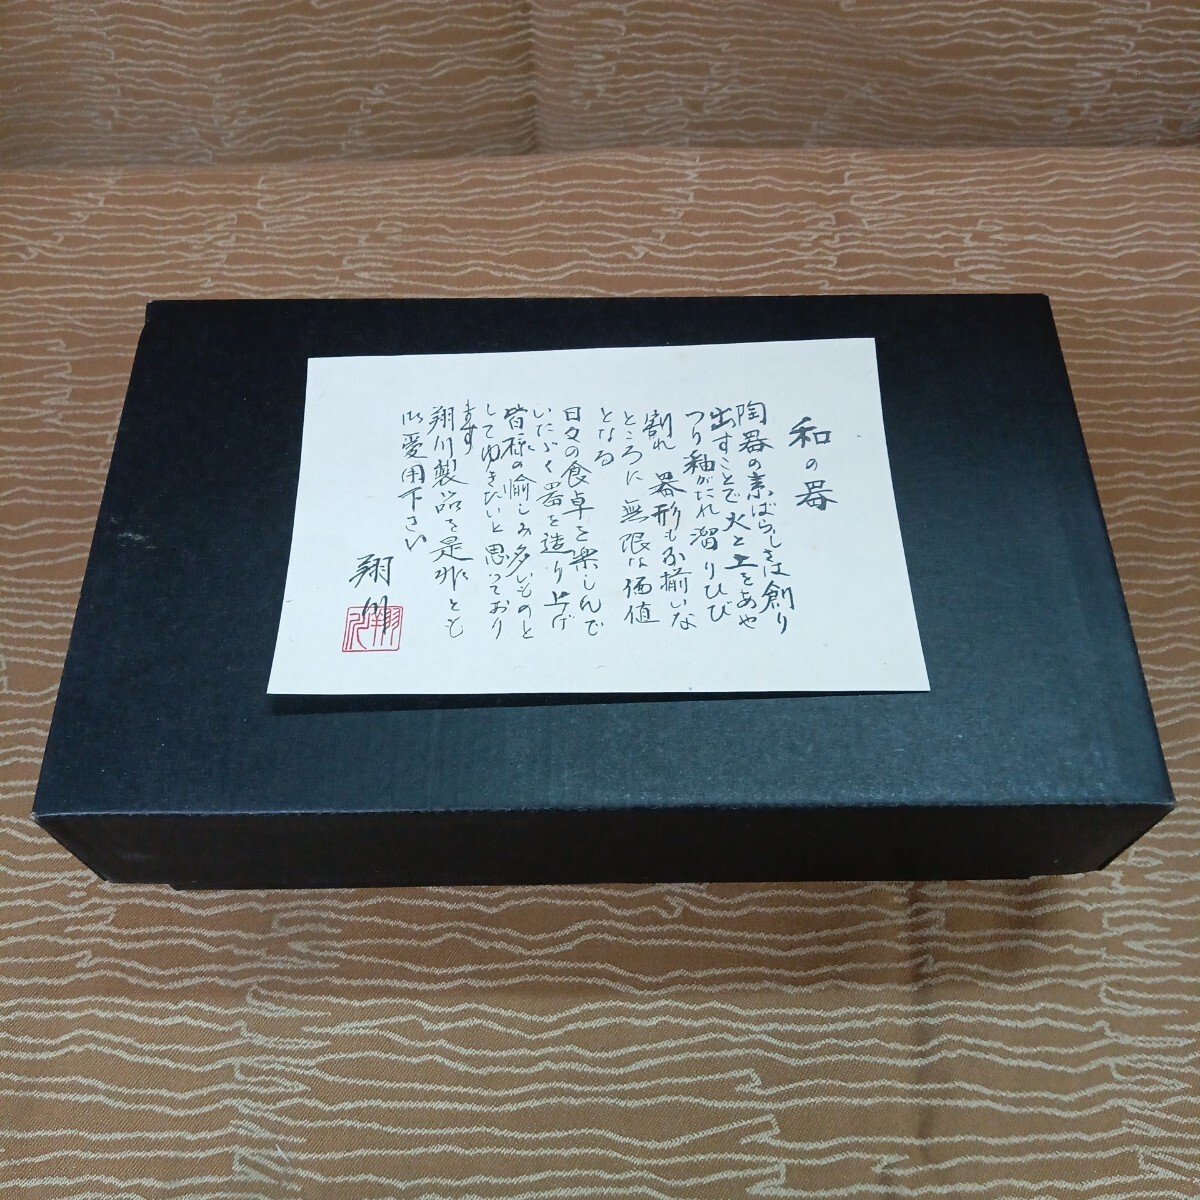 和の器
陶器の素ばらしさは創り
出すことで火と土をあや
つり釉がたれ溜りひび
割れ 器形も不揃いな
ところに無限な価値
となる
日々の食卓を楽しんで
いただく器を造り上げ
皆様の愉しみ多いものと
してゆきたいと思っており
ます
翔川製品を是非とも
御愛用下さい
翔川
翔川